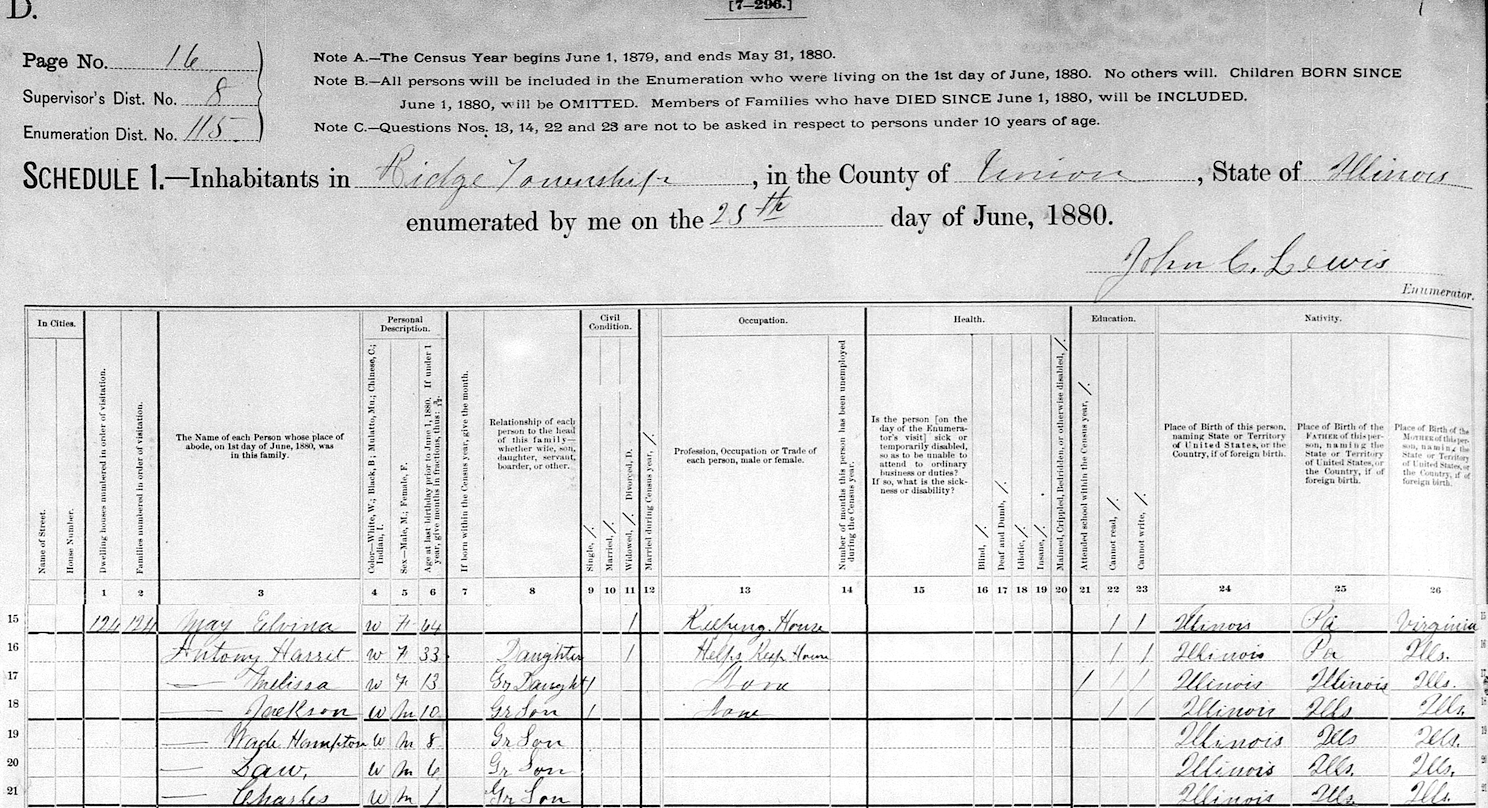 D.
[7—296.]
Page No. 16
Supervisor's Dist. No. 8
Enumeration Dist. No. 115
Note A.—The Census Year begins June 1, 1879, and ends May 31, 1880.
Note B.—All persons will be included in the Enumeration who were living on the 1st day of June, 1880. No others will. Children BORN SINCE
June 1, 1880, will be OMITTED. Members of Families who have DIED SINCE June 1, 1880, will be INCLUDED.
Note C.—Questions Nos. 13, 14, 22 and 23 are not to be asked in respect to persons under 10 years of age.
SCHEDULE 1.—Inhabitants in Ridge Township, in the County of Union, State of Illinois
enumerated by me on the 25th day of June, 1880.
John C. Lewis
Enumerator.
In Cities.
Name of Street.
House Number.
Dwelling houses numbered in order of visitation.
Families numbered in order of visitation.
The Name of each Person whose place of
abode, on 1st day of June, 1880, was
in this family.
Personal
Description.
Color—White, W.; Black, B; Mulatto, Mu.; Chinese, C.;
Indian, I.
Sex—Male, M.; Female, F.
Age at last birthday prior to June 1, 1880. If under 1
year, give months in fractions, thus: 3/12.
If born within the Census year, give the month.
Relationship of each
person to the head
of this family—
whether wife, son,
daughter, servant,
boarder, or other.
Civil
Condition.
Single, /.
Married, /.
Widowed, /. Divorced, D.
Married during Census year, /.
Occupation.
Profession, Occupation or Trade of
each person, male or female.
Number of months this person has been unemployed
during the Census year.
Health.
Is the person [on the
day of the Enumera-
tor's visit] sick or
temporarily disabled,
so as to be unable to
attend to ordinary
business or duties?
If so, what is the sick-
ness or disability?
Blind, /.
Deaf and Dumb, /.
Idiotic, /.
Insane, /.
Maimed, Crippled, Bedridden, or otherwise disabled, /.
Education.
Attended school within the Census year, /.
Cannot read, /.
Cannot write, /.
Nativity.
Place of Birth of this person,
naming State or Territory
of United States, or the
Country, if of foreign birth.
Place of Birth of the
FATHER of this per-
son, naming the
State or Territory
of United States, or
the Country, if of
foreign birth.
Place of Birth of the
MOTHER of this per-
son, naming the
State or Territory
of United States, or
the Country, if of
foreign birth.
1 2 3 4 5 6 7 8 9 10 11 12 13 14 15 16 17 18 19 20 21 22 23 24 25 26
15 124 124 May Elvina W F 64 / Keeping House / / Illinois Pa Virginia
16 Antony Harret W F 33 Daughter / Helps Keep House / / Illinois Pa Ills.
17 — Melissa W F 13 Gr Daught / None / / / Illinois Illinois Ills.
18 — Jackson W M 10 Gr Son / None / / Illinois Ills Ills.
19 — Wade Hampton W M 8 Gr Son Illinois Ills Ills.
20 — Law, W M 6 Gr Son Illinois Ills. Ills.
21 — Charles W M 1 Gr Son Illinois Ills. Ills.